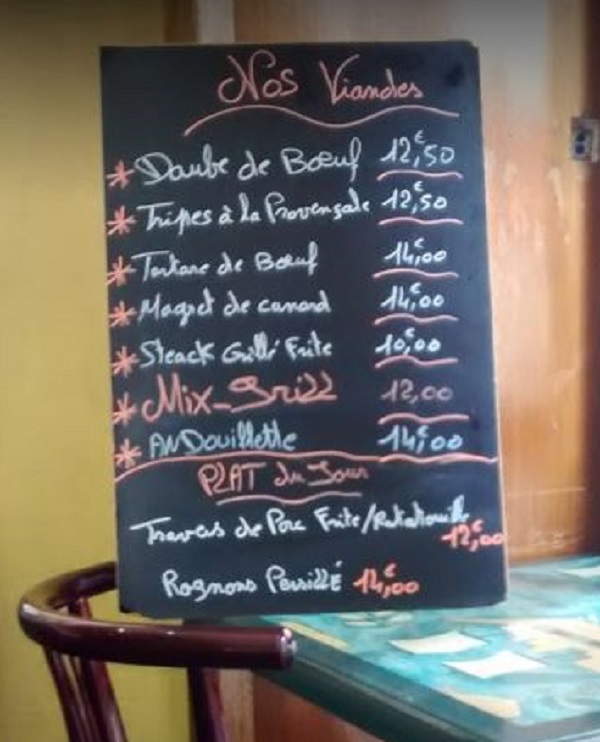 Nos Viandes
* Daube de Bœuf 12,€50
* Tripes à la Provençale 12,€50
* Tartare de Bœuf 14,€00
* Magret de canard 14,€00
* Steack Grillé Frite 10,€00
* Mix-Grill 12,00
* ANDouillette 14,€00
PLAT du Jour
Travers de Porc Frite/Ratatouille
12,€00
Rognons Persillé 14,€00